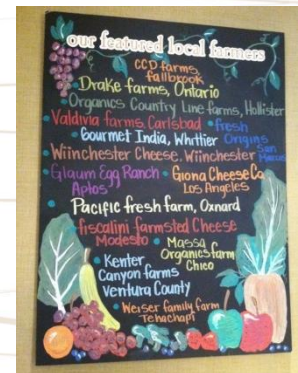 our featured local farmers
CCD farms,
fallbrook
Drake farms, Ontario
Organics Country Line farms, Hollister
Valdivia farms, Carlsbad • fresh
Gourmet India, Whittier Origins
San
Marcos
• Wiinchester Cheese, Wiinchester
• Glaum Egg Ranch • Giona Cheese Co
Aptos Los Angeles
• Pacific fresh farm, Oxnard
• fiscalini farmsted Cheese
Modesto • Massa
Organics farm
Chico
• Kenter
Canyon farms
Ventura County
• Weiser family farm
Tehachapi